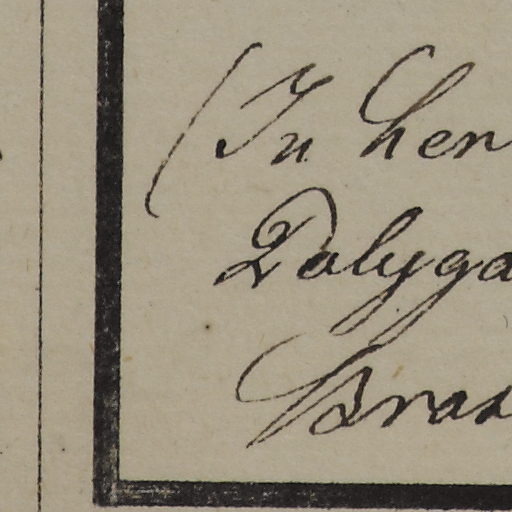 (In her
Dalyga
Bras